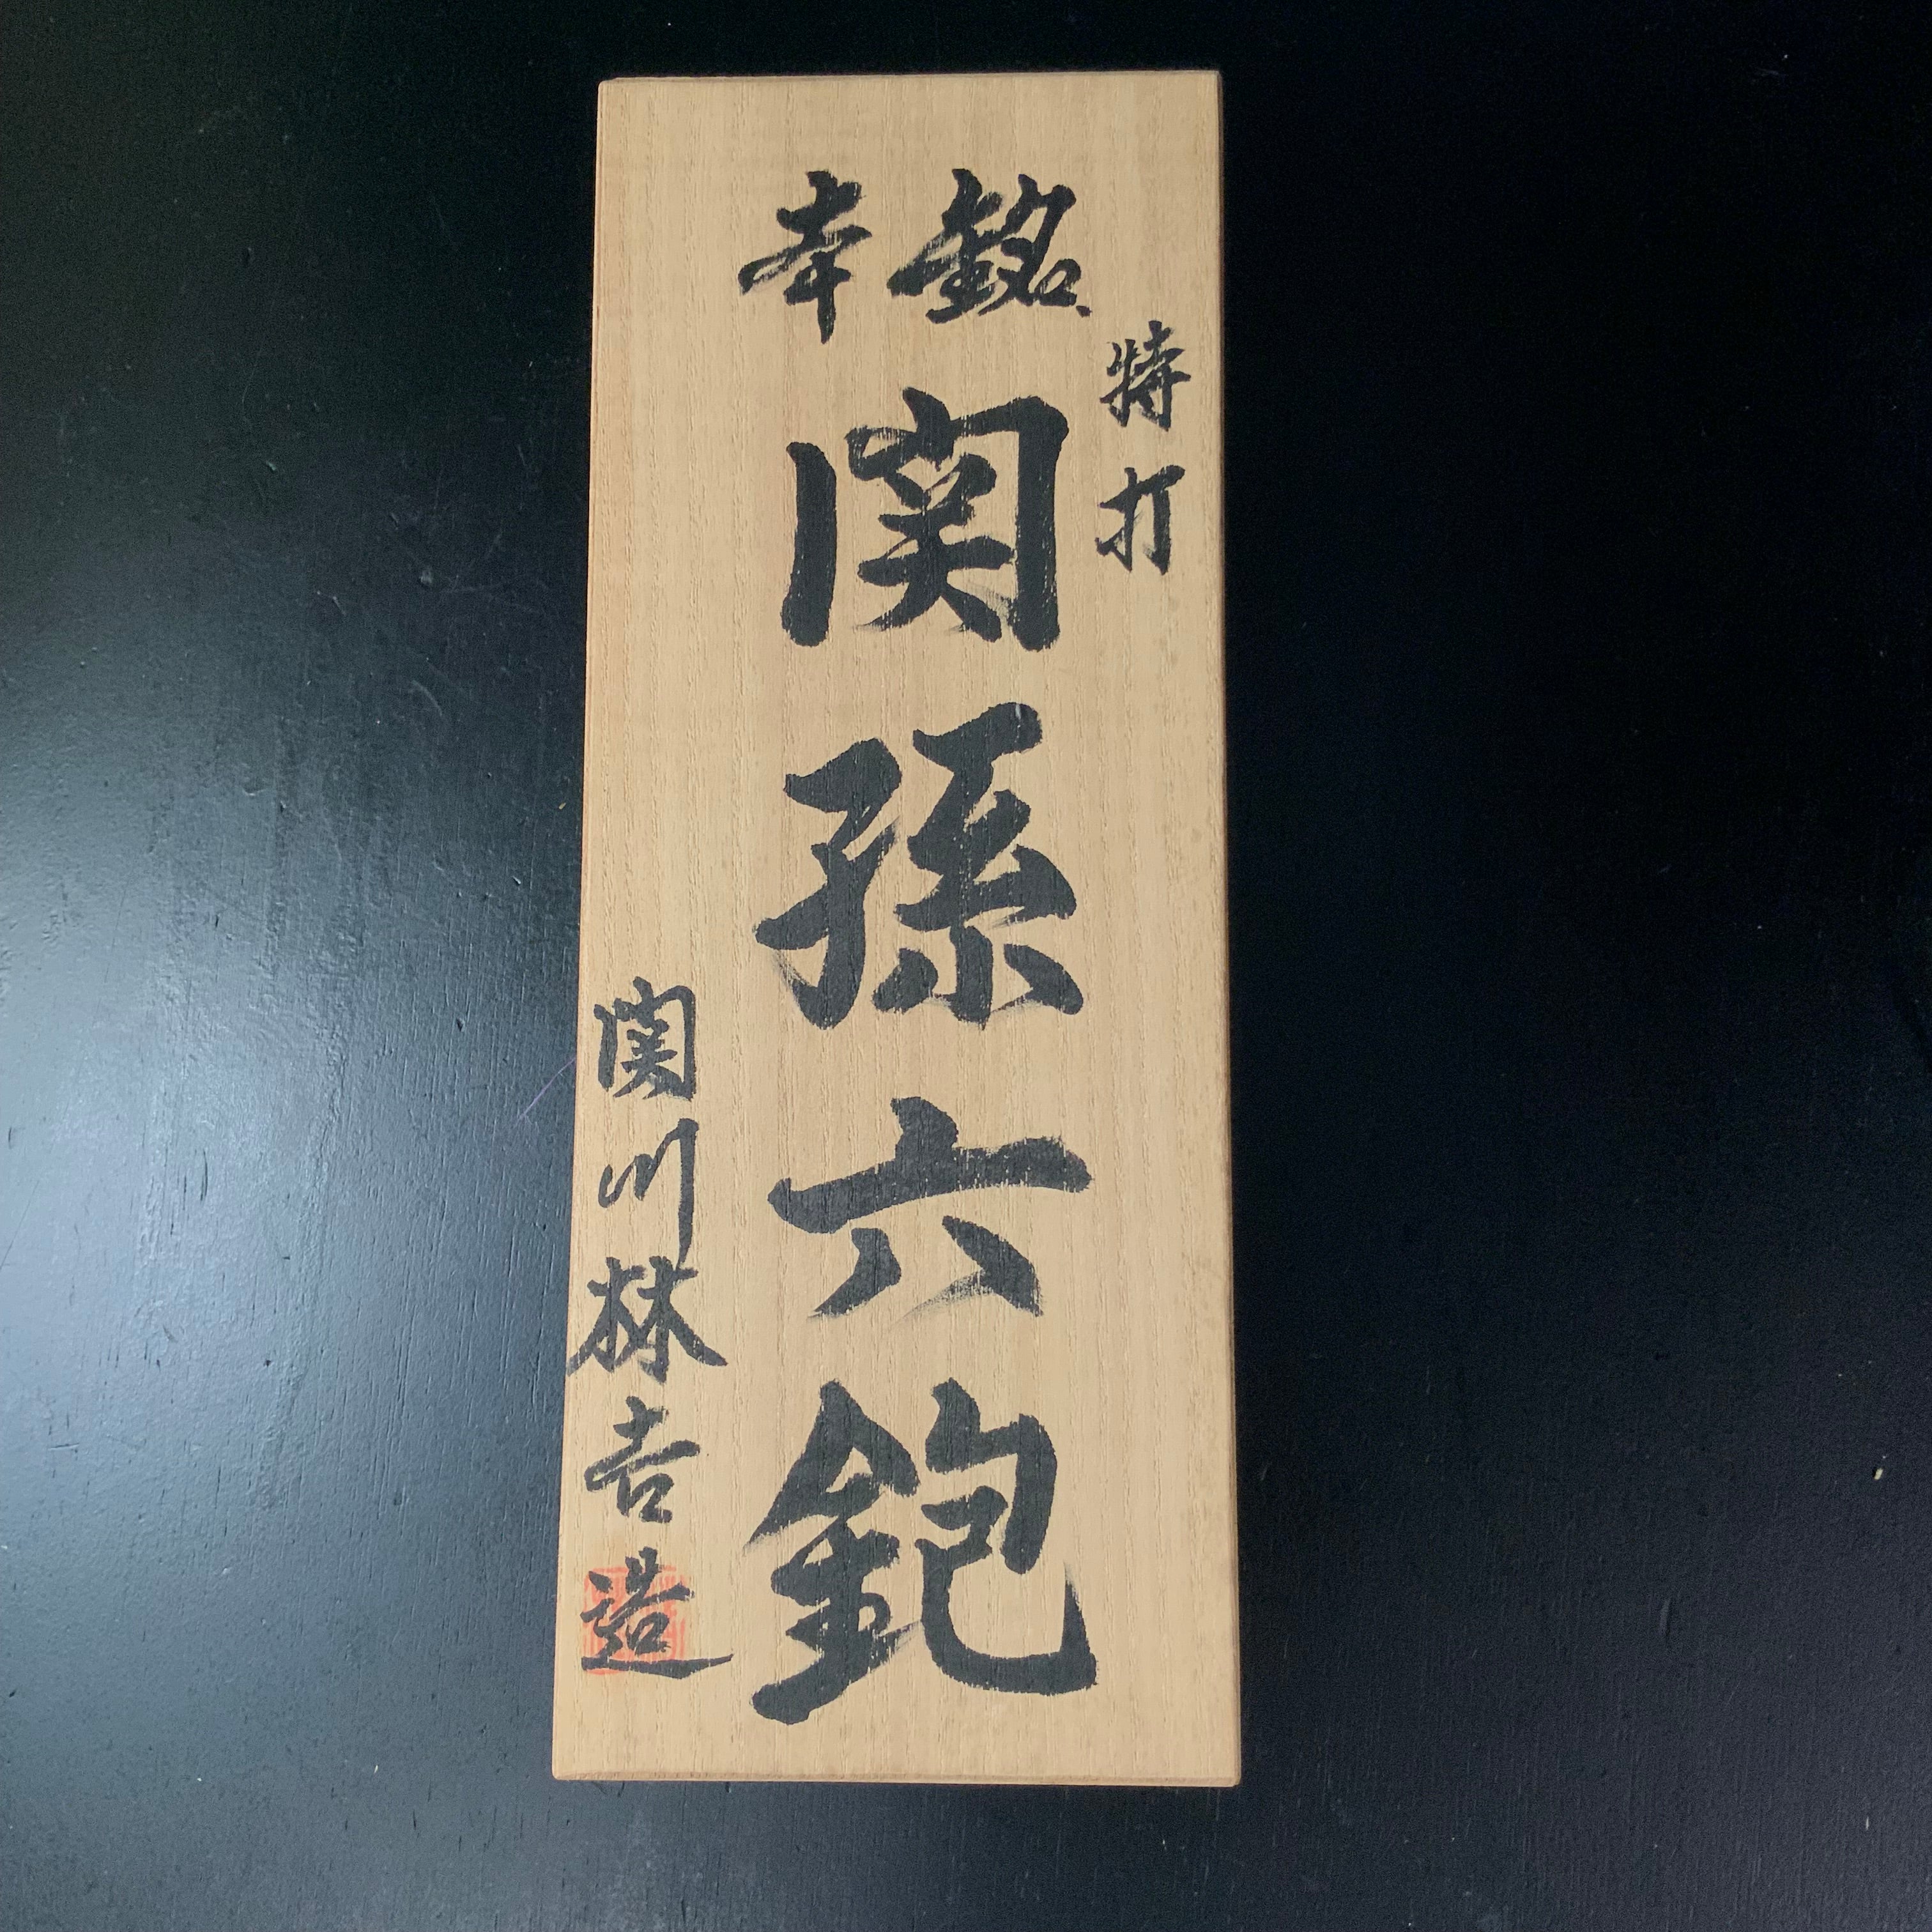 特打
銘本
関孫六鉋
関川林吉造